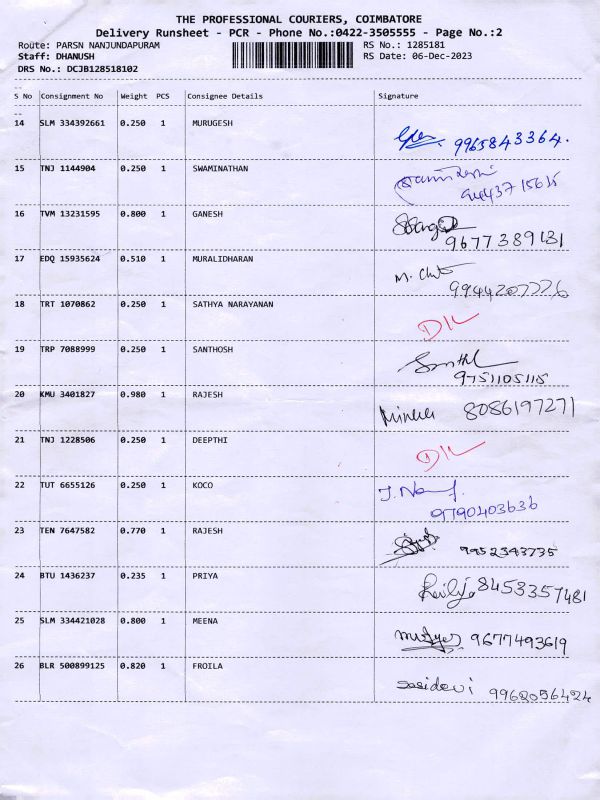 THE PROFESSIONAL COURIERS, COIMBATORE
Delivery Runsheet - PCR - Phone No.:0422-3505555 - Page No.:2
Route: PARSN NANJUNDAPURAM RS No.: 1285181
Staff: DHANUSH RS Date: 06-Dec-2023
DRS No.: DCJB128518102
S No Consignment No Weight PCS Consignee Details Signature
14 SLM 334392661 0.250 1 MURUGESH
9965843364.
15 TNJ 1144904 0.250 1 SWAMINATHAN
9443715615
16 TVM 13231595 0.800 1 GANESH
9677389131
17 EDQ 15935624 0.510 1 MURALIDHARAN
9944207726
18 TRT 1070862 0.250 1 SATHYA NARAYANAN
D/L
19 TRP 7088999 0.250 1 SANTHOSH
9751105115
20 KMU 3401827 0.980 1 RAJESH
8086197271
21 TNJ 1228506 0.250 1 DEEPTHI
D/L
22 TUT 6655126 0.250 1 KOCO
9790403636
23 TEN 7647582 0.770 1 RAJESH
9952343735
24 BTU 1436237 0.235 1 PRIYA
8453357481
25 SLM 334421028 0.800 1 MEENA
9677493619
26 BLR 500899125 0.820 1 FROILA
sasidevi 9962056424